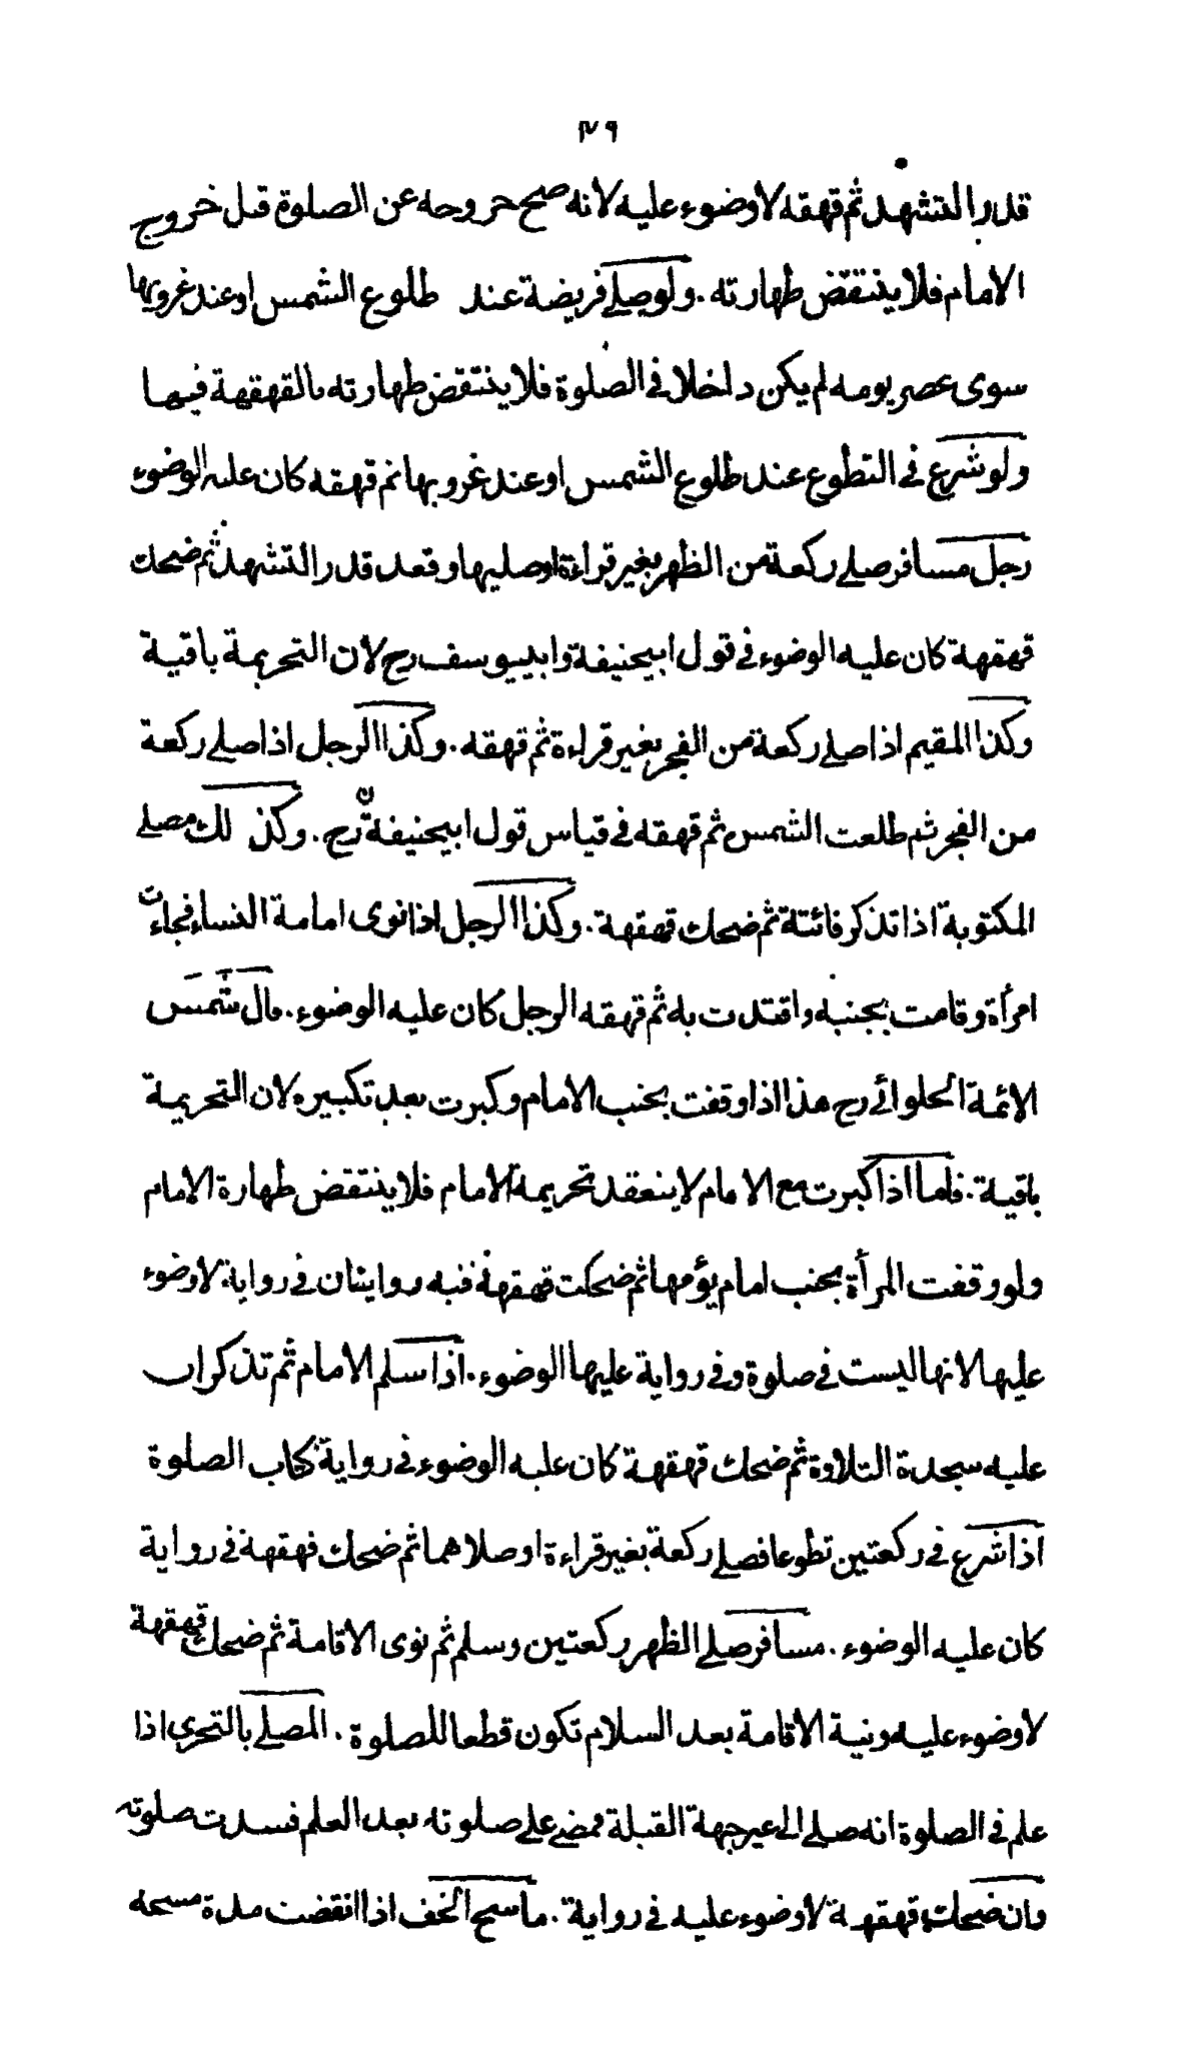 ٢٧٩
قدر التشهد ثم قهقه لا وضوء عليه لانه صح خروجه عن الصلوة قبل خروج
الامام فلا ينتقض طهارته . ولو صلى فريضة عند طلوع الشمس او عند غروبها
سوى عصر يومه لم يكن داخلا في الصلوة فلا ينتقض طهارته بالقهقهة فيها
ولو شرع في التطوع عند طلوع الشمس او عند غروبها ثم قهقه كان عليه الوضوء
رجل مسافر صلى ركعة من الظهر بغير قراءة او صليها وقعد قدر التشهد ثم ضحك
قهقهة كان عليه الوضوء في قول ابيحنيفة وابييوسف رح لان التحريمة باقية
وكذا المقيم اذا صلى ركعة من الفجر بغير قراءة ثم قهقه . وكذا الرجل اذا صلى ركعة
من الفجر ثم طلعت الشمس ثم قهقه في قياس قول ابيحنيفة رح . وكذلك مصلى
المكتوبة اذا تذكر فائتة ثم ضحك قهقهة . وكذا الرجل اذا نوى امامة النساء فجاءت
امرأة وقامت بجنبه واقتدت به ثم قهقه الرجل كان عليه الوضوء . قال شمس
الائمة الحلوائي رح هذا اذا وقفت بجنب الامام وكبرت بعد تكبيره لان التحريمة
باقية . فاما اذا كبرت مع الامام لا ينعقد تحريمة الامام فلا ينتقض طهارة الامام
ولو وقفت المرأة بجنب امام يؤمها ثم ضحكت قهقهة ففيه روايتان في رواية لا وضوء
عليها لانها ليست في صلوة وفي رواية عليها الوضوء . اذا سلم الامام ثم تذكر ان
عليه سجدة التلاوة ثم ضحك قهقهة كان عليه الوضوء في رواية كتاب الصلوة
اذا شرع في ركعتين تطوعا فصلى ركعة بغير قراءة او صلاهما ثم ضحك قهقهة في رواية
كان عليه الوضوء . مسافر صلى الظهر ركعتين وسلم ثم نوى الاقامة ثم ضحك قهقهة
لا وضوء عليه ونية الاقامة بعد السلام تكون قطعا للصلوة . المصلى بالتحرى اذا
علم في الصلوة انه صلى الى غير جهة القبلة فمضى على صلوته بعد العلم فسدت صلوته
وان ضحك قهقهة لا وضوء عليه في رواية . ماسح الخف اذا انقضت مدة مسحه